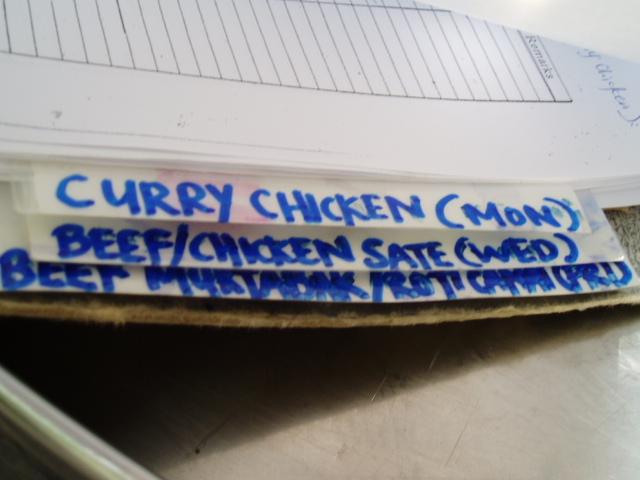 Remarks
Chicken)
CURRY CHICKEN (MON)
BEEF/CHICKEN SATE (WED)
BEEF MURTABAK/ROTI CANAI (FRI)